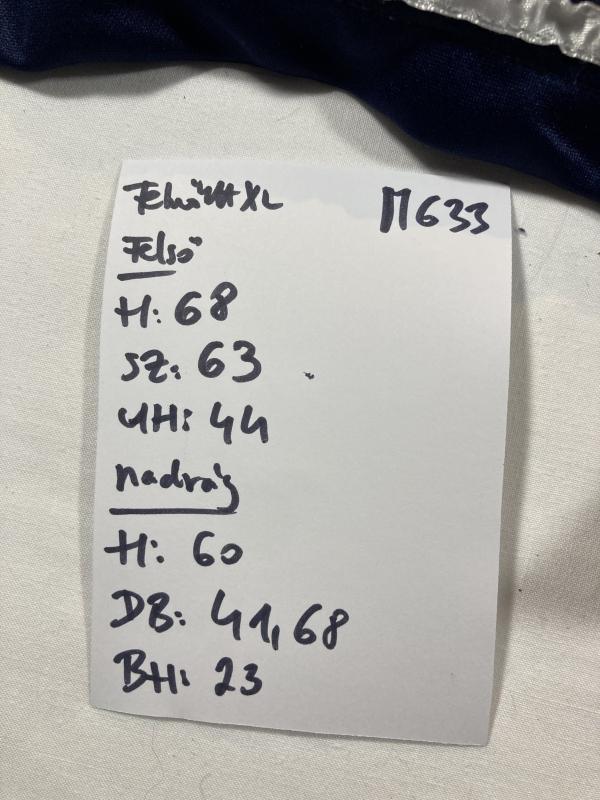 Felnőtt XL M633
Felső
H: 68
SZ: 63
UH: 44
nadrág
H: 60
DB: 41,68
BH: 23